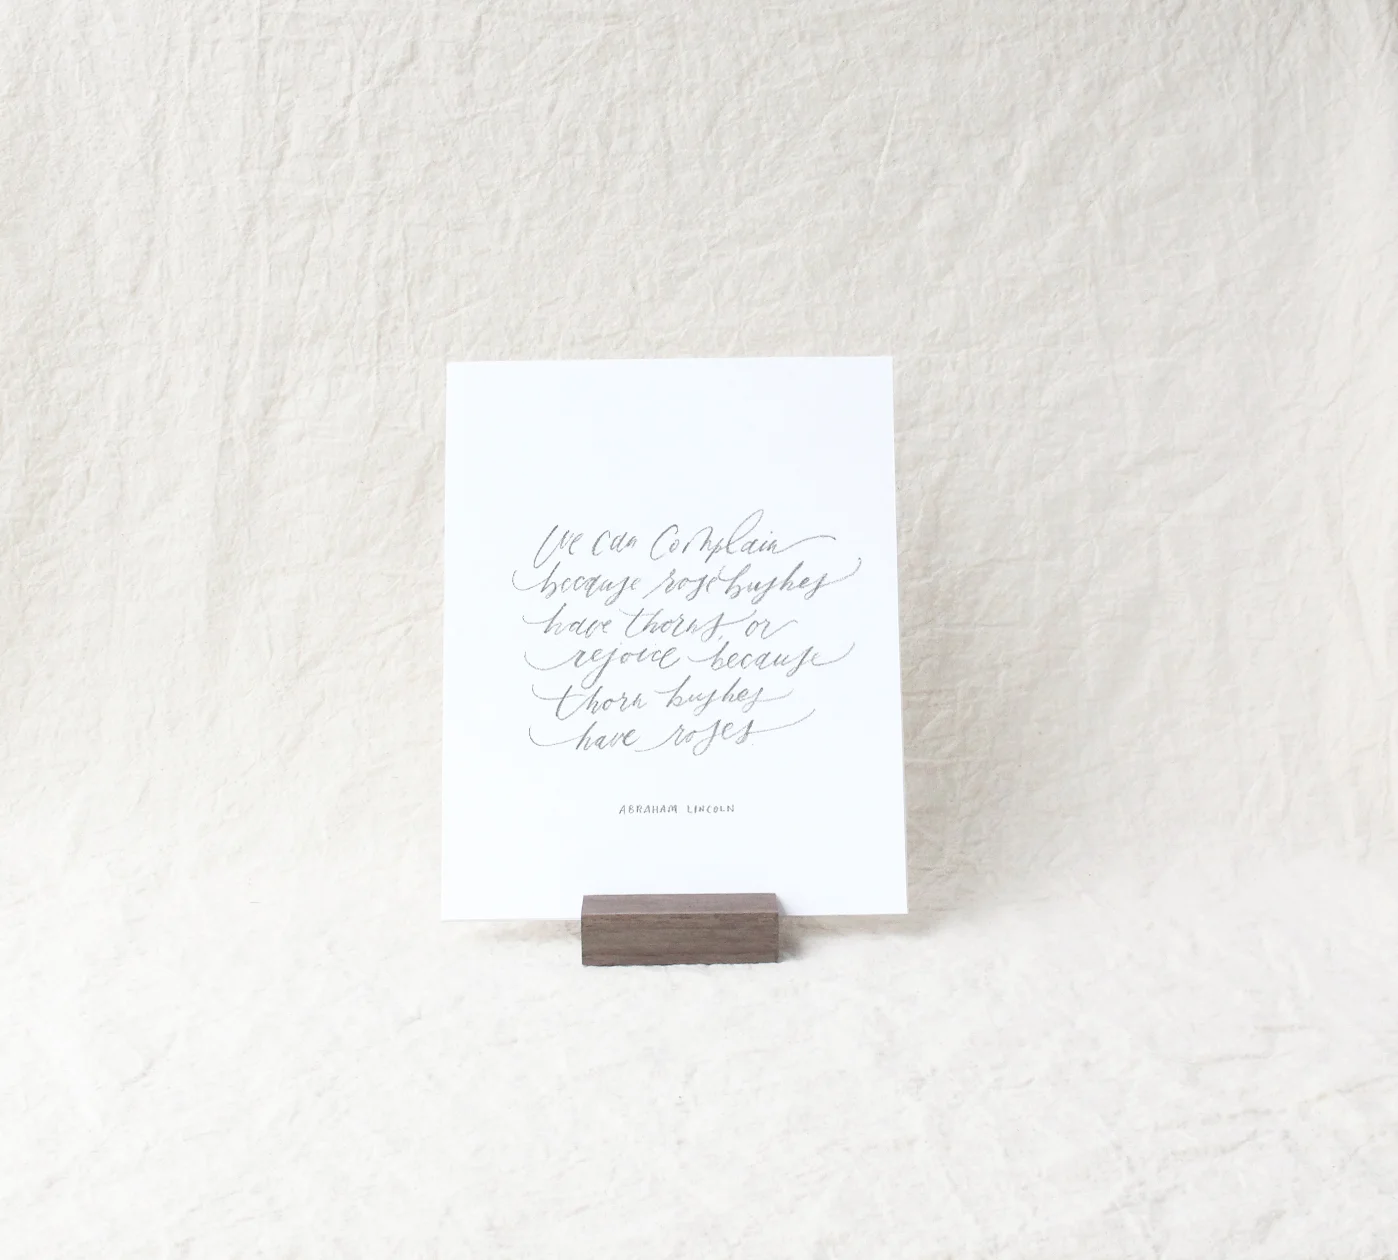 We can Complain
because rose bushes
have thorns, or
rejoice because
thorn bushes
have roses
ABRAHAM LINCOLN